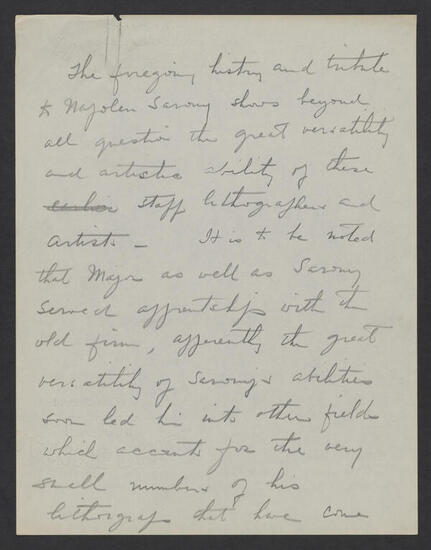 The foregoing history and tribute
to Napolen Sarony shows beyond
all question the great versatility
and artistic ability of these
earlier staff lithographers and
artists – It is to be noted
that Major as well as Sarony
served apprentship with the
old firm, apperently the great
versatility of Sarony's abilities
soon led him into other fields
which accounts for the very
small numbers of his
lithograps that have come